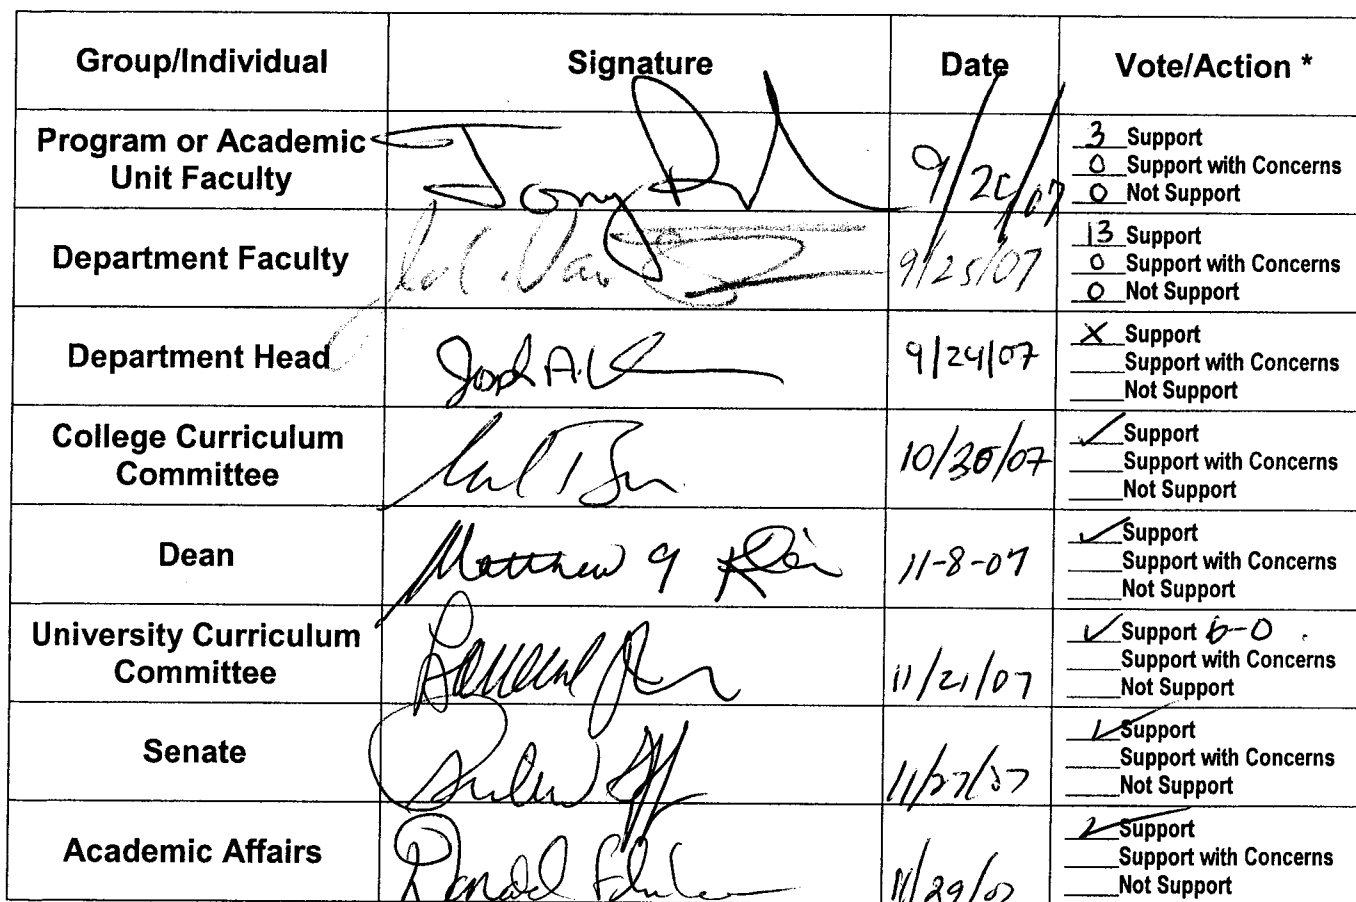 Group/Individual Signature Date Vote/Action *
Program or Academic
Unit Faculty
Tony
9/2 /07
3 Support
0 Support with Concerns
0 Not Support
Department Faculty
9/25/07
13 Support
0 Support with Concerns
0 Not Support
Department Head
Joseph A.
9/24/07
X Support
___Support with Concerns
___Not Support
College Curriculum
Committee
10/30/07
✓ Support
___Support with Concerns
___Not Support
Dean
Matthew 9 Klein
11-8-07
✓ Support
___Support with Concerns
___Not Support
University Curriculum
Committee
11/21/07
✓ Support 6-0
___Support with Concerns
___Not Support
Senate
11/27/07
✓ Support
___Support with Concerns
___Not Support
Academic Affairs
Donald
11/29/07
✓ Support
___Support with Concerns
___Not Support